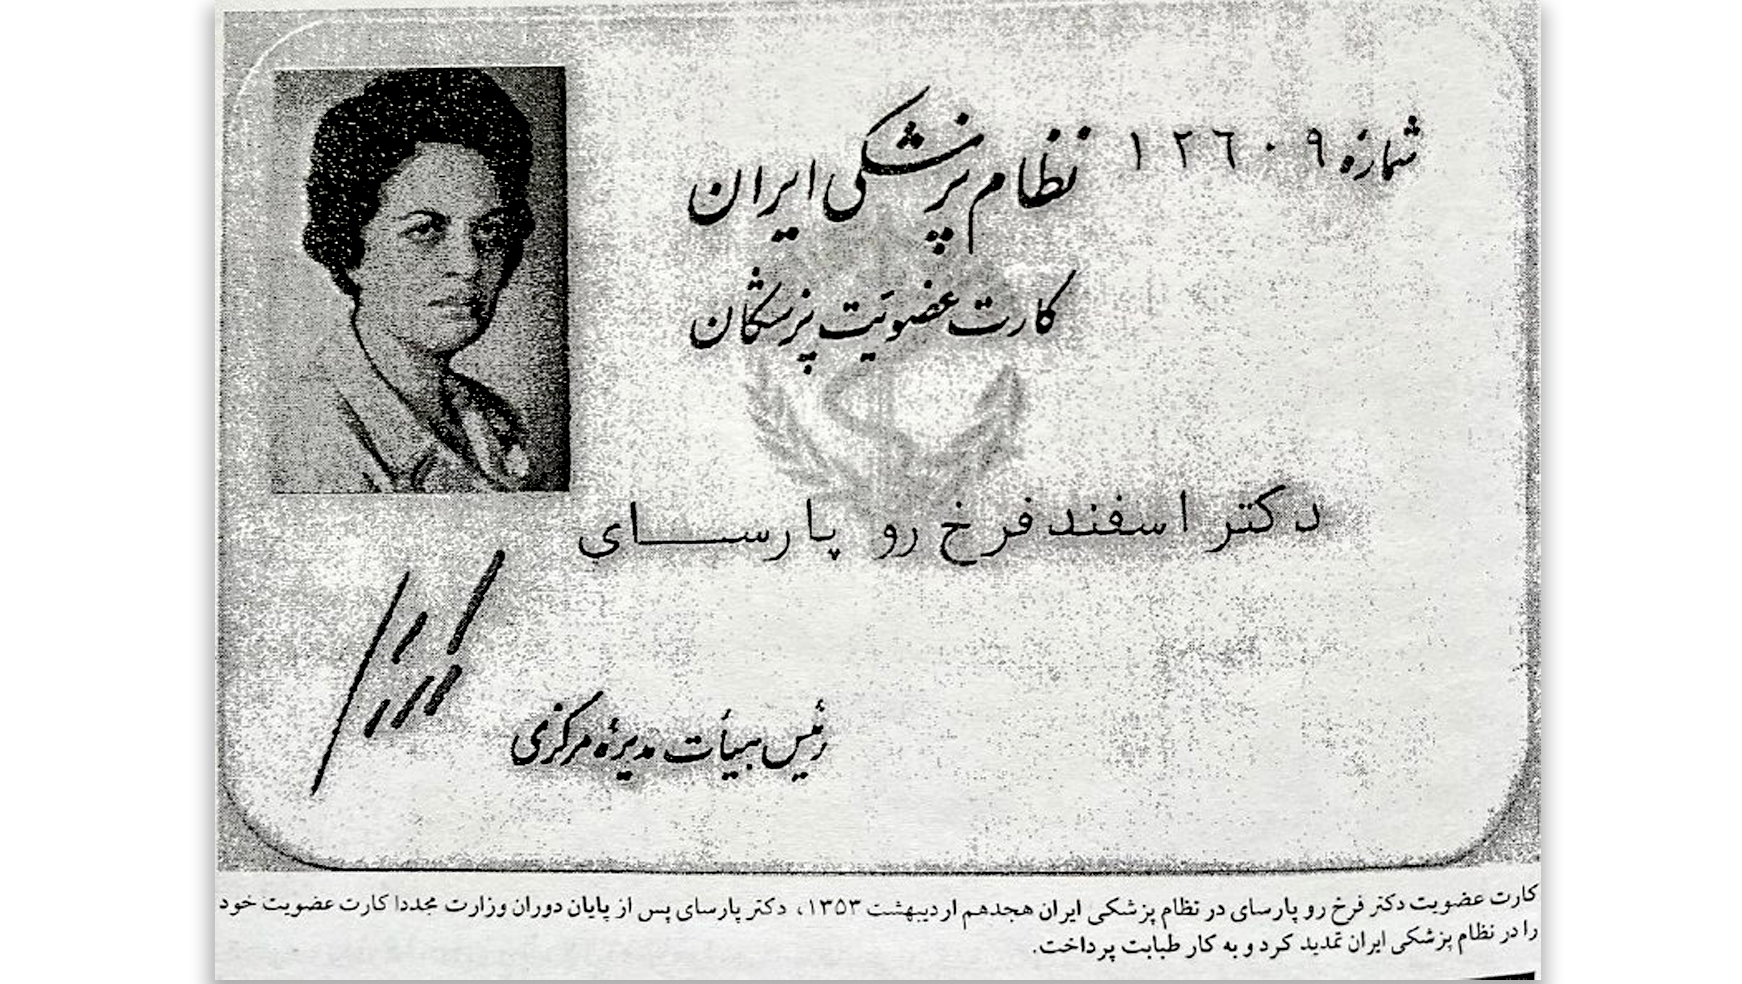 شماره ۱۲۶۰۹
نظام پزشکی ایران
کارت عضویت پزشکان
دکتر اسفند فرخ رو پارسای
رئیس هیأت مدیره مرکزی
کارت عضویت دکتر فرخ رو پارسای در نظام پزشکی ایران هجدهم اردیبهشت ۱۳۵۳، دکتر پارسای پس از پایان دوران وزارت مجددا کارت عضویت خود
را در نظام پزشکی ایران تمدید کرد و به کار طبابت پرداخت.